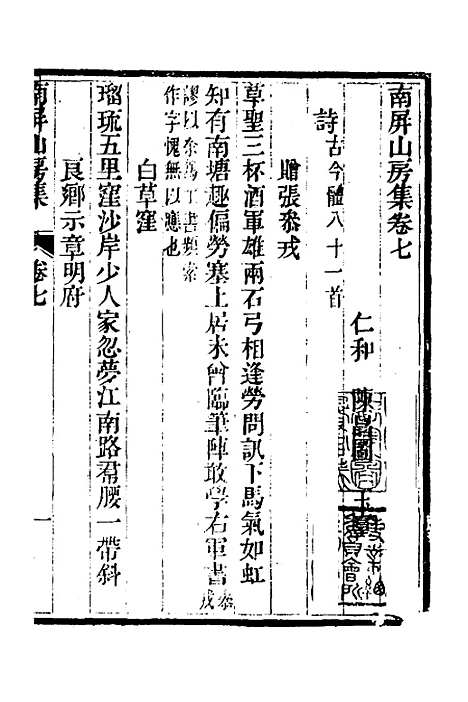 南屏山房集卷七
仁和 陳昌圖 玉
詩古今體八十一首
贈張叅戎
草聖三杯酒軍雄兩石弓相逢勞問訊下馬氣如虹
知有南塘趣偏勞塞上居未曾臨筆陣敢學右軍書叅戎
謬以余爲工書頻索
作字愧無以應也
白草窪
瑠琉五里窪沙岸少人家忽夢江南路帬腰一帶斜
良鄉示章明府
南屏山房集 卷七 一